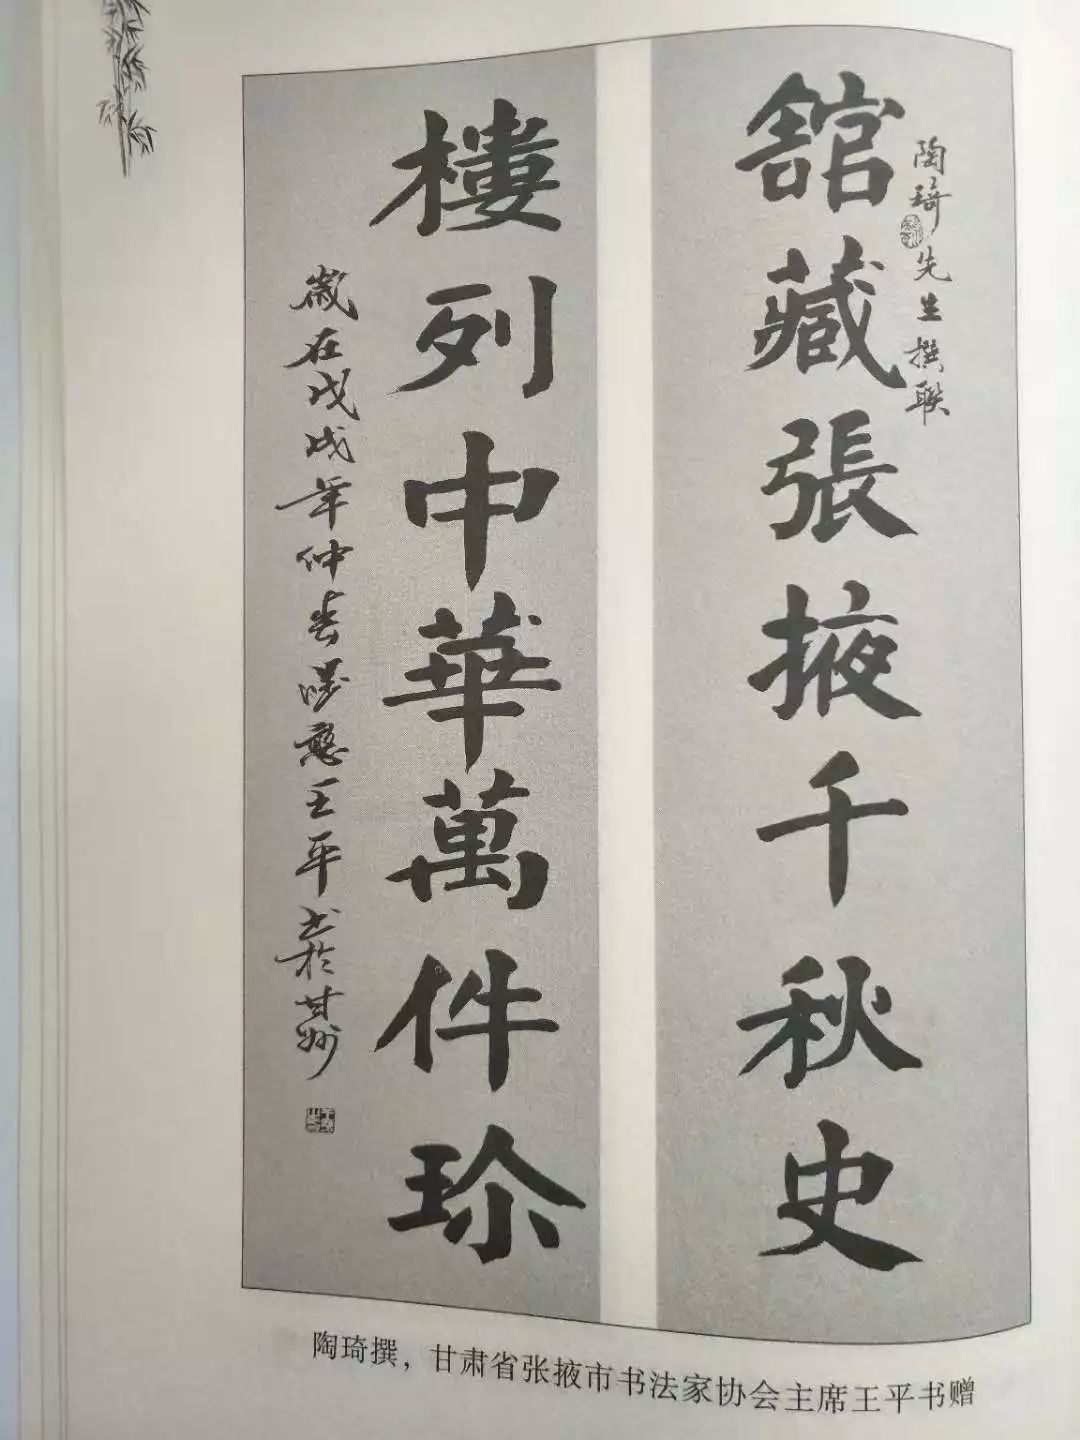 陶琦先生撰联
舘藏張掖千秋史
樓列中華萬件珎
歲在戊戌年仲春
王平书於甘州
陶琦撰，甘肃省张掖市书法家协会主席王平书赠